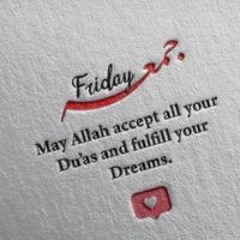 Friday جمعہ
May Allah accept all your
Du'as and fulfill your
Dreams.